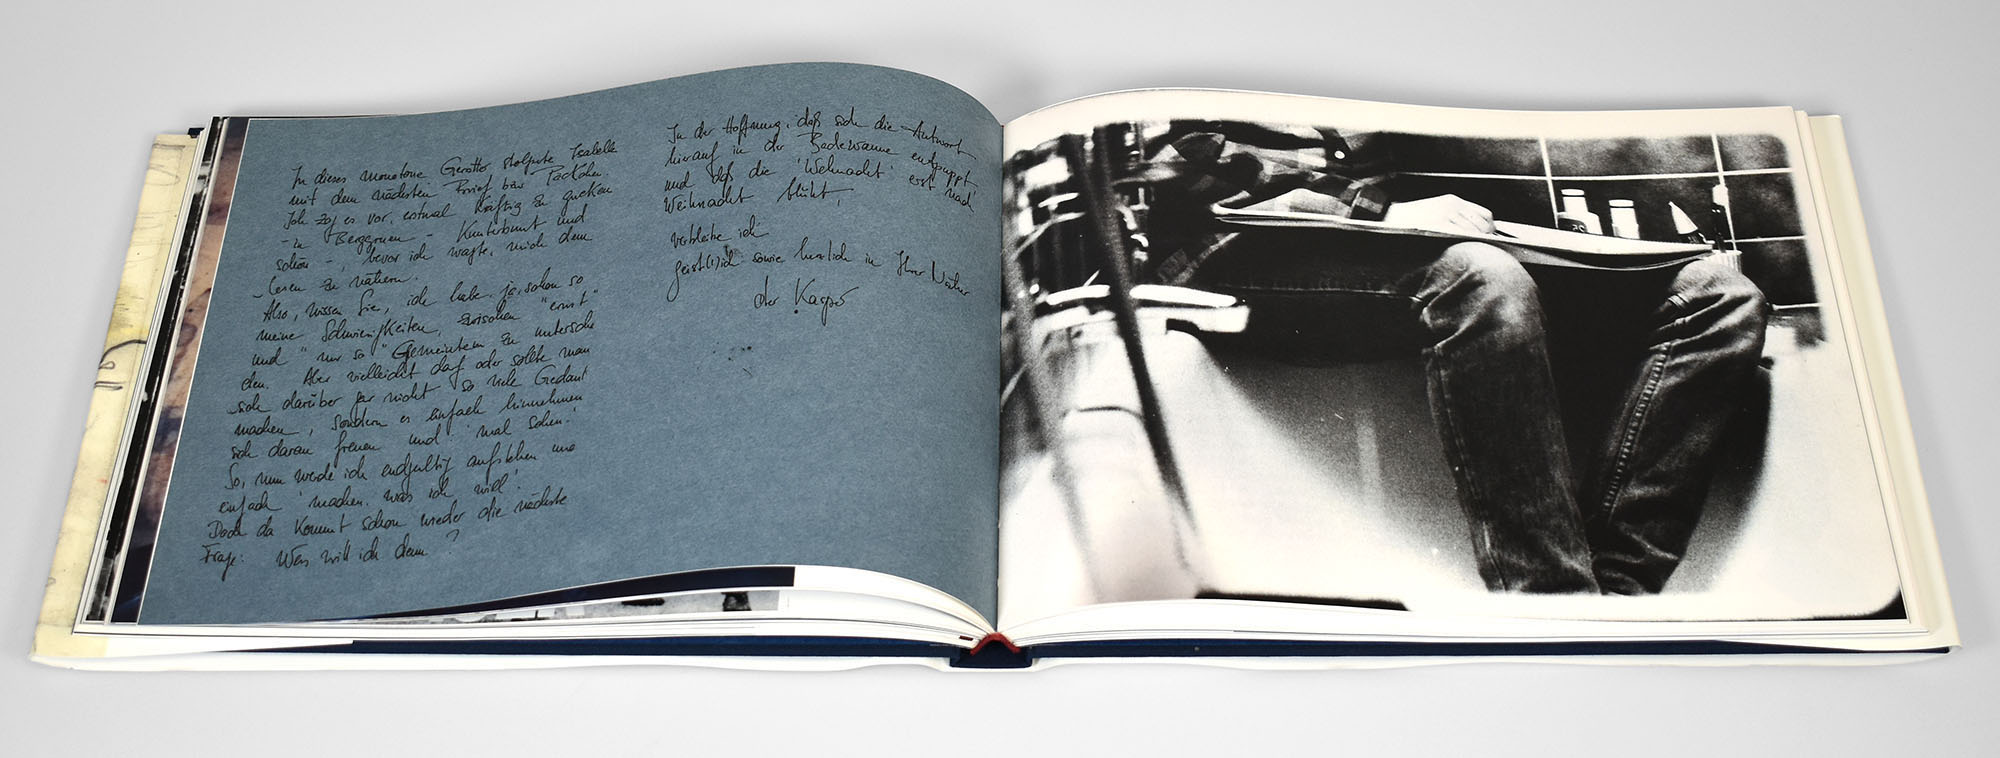 In dieses monotone Gerotto stolperte Isabelle
mit dem nächsten Brief bzw Päckchen.
Ich zog es vor, erstmal kräftig zu gucken
- in Bergornen - Kunterbunt und
schön -, bevor ich wagte, mich dem
Lesen zu nähern.
Also, wissen Sie, ich habe ja schon so
meine Schwierigkeiten, zwischen "ernst"
und "nur so" Gemeintem zu untersche
den. Aber vielleicht darf oder sollte man
sich darüber gar nicht so viele Gedank
machen, sondern es einfach hinnehmen
sich daran freuen und 'mal sehen'.
So, nun werde ich endgültig aufstehen und
einfach 'machen, was ich will'.
Doch da kommt schon wieder die nächste
Frage: Was will ich denn?
In der Hoffnung, daß sich die Antwort
hierauf in der Badewanne entpuppt
und daß die 'Wehnacht' erst nach
Weihnacht blüht,
verbleibe ich
geist(l)ich sowie herzlich in Ihrer Nähe
der Kasper